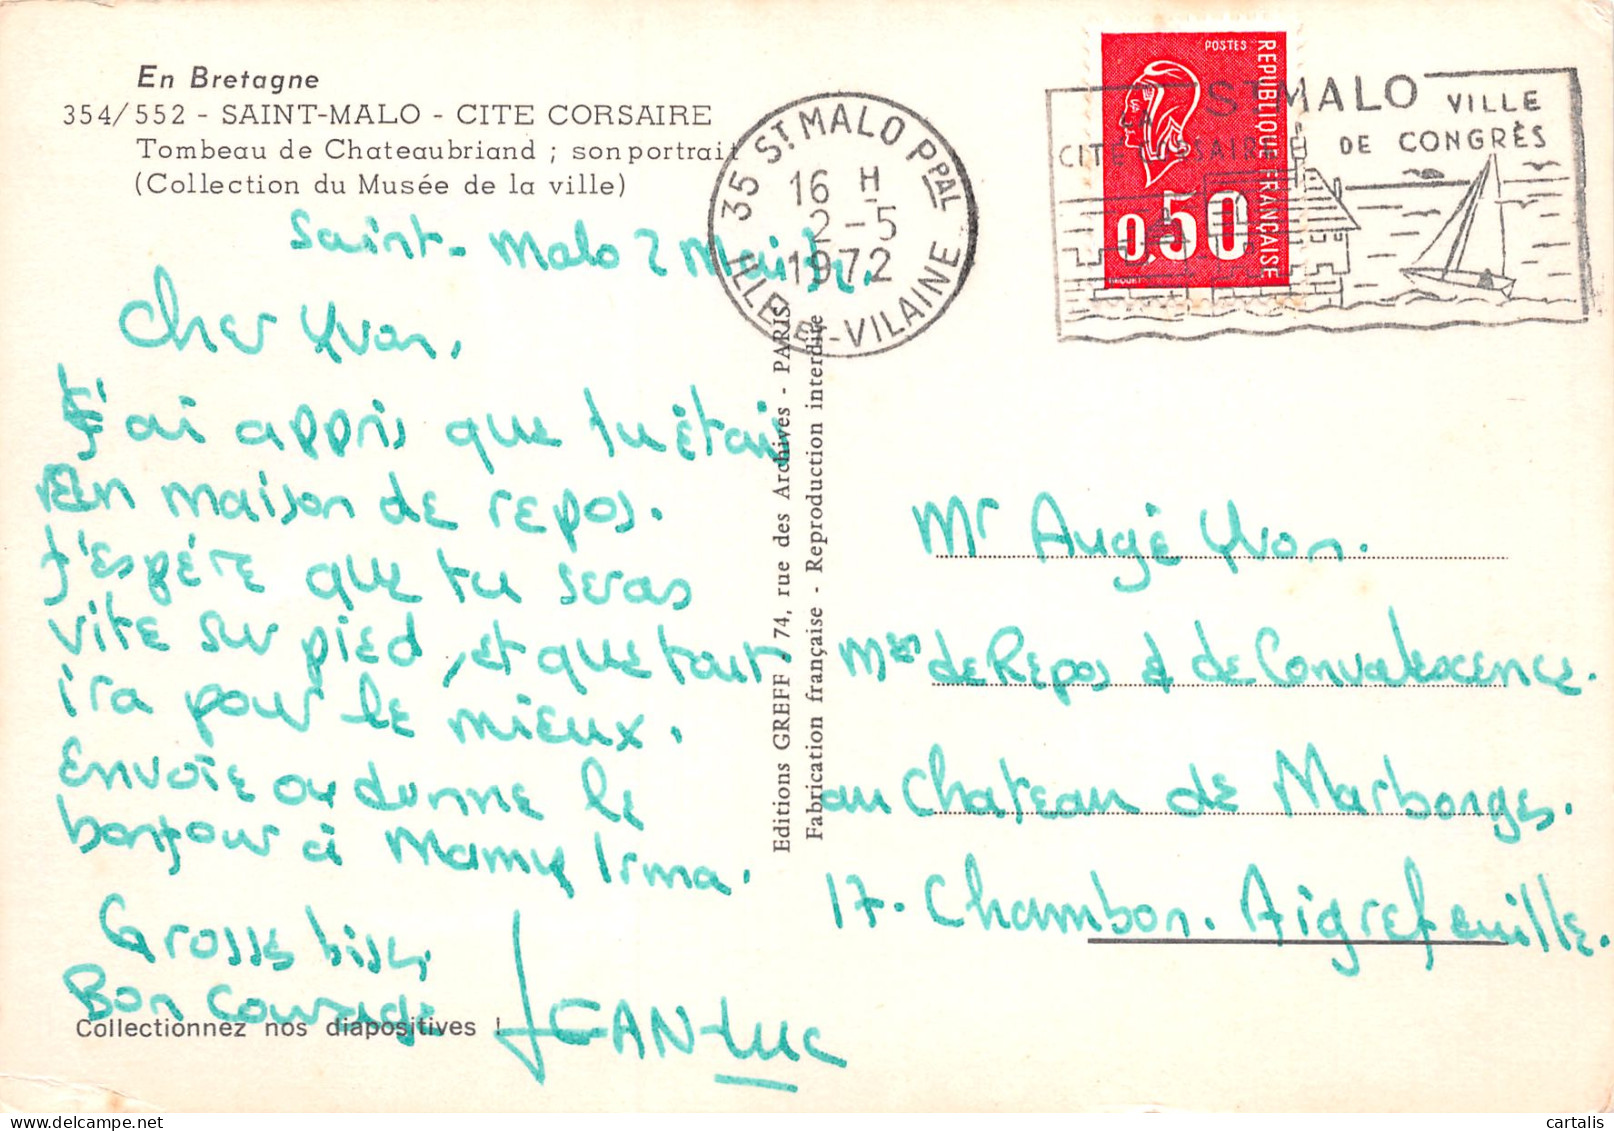 En Bretagne
354/552 - SAINT-MALO - CITE CORSAIRE
Tombeau de Chateaubriand ; son portrait
(Collection du Musée de la ville)
Saint-Malo 2 Mai
Cher Yvon,
J'ai appris que tu étais
en maison de repos.
J'espére que tu seras
vite sur pied, et que tout
ira pour le mieux.
Envoie ou donne le
bonjour à Mamy Irma.
Grosses bises,
Bon courage
JEAN-LUC
Collectionnez nos diapositives !
Editions GREFF - 74, rue des Archives - PARIS
Fabrication française - Reproduction interdite
35 ST MALO PPAL
16 H
2-5
1972
ILLE-ET-VILAINE
LA
CITE CORSAIRE
ST MALO
VILLE
DE CONGRÈS
POSTES
REPUBLIQUE FRANÇAISE
0,50
Mr Augé Yvon.
Mon de Repos & de Convalescence.
au Chateau de Marbonges.
17. Chambon. Aigrefeuille.
cartalis
delcampe.net